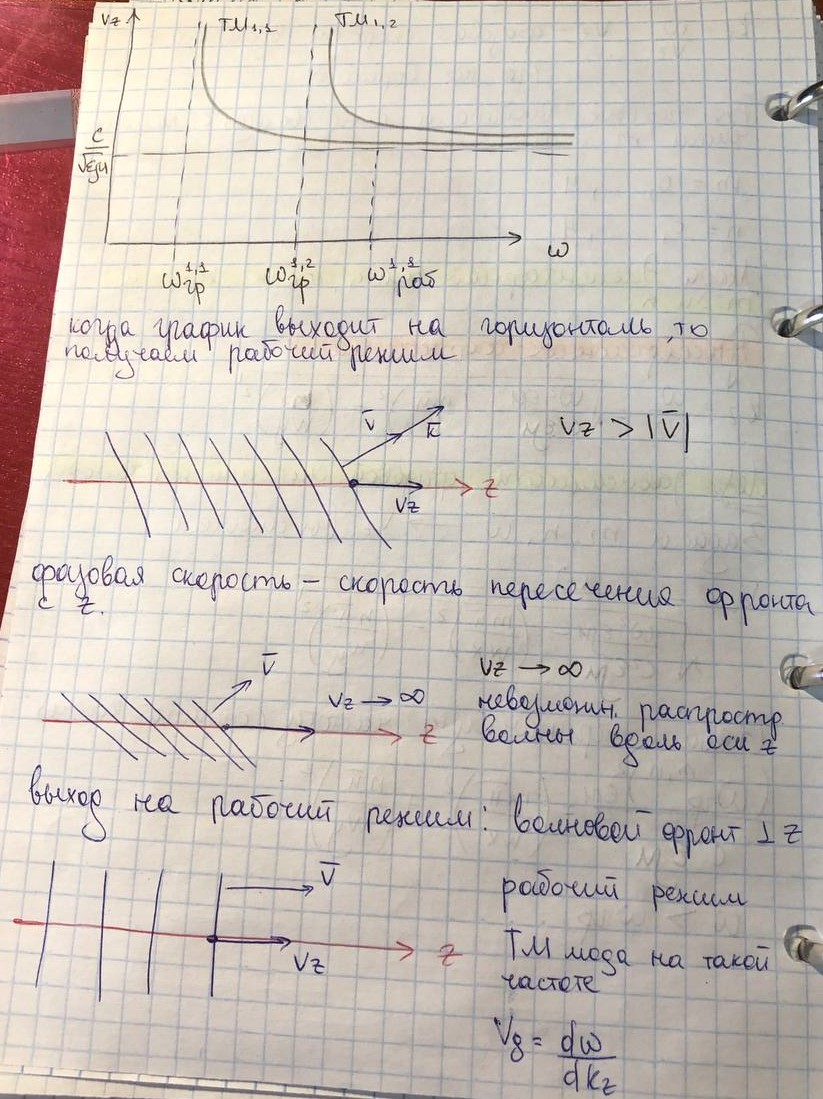 Vz
TM₁,₁
TM₁,₂
c/√εμ
ω
ω гр ¹,¹
ω гр ¹,²
ω раб ¹,¹
когда график выходит на горизонталь, то
получаем рабочий режим
V̄
k̄
Vz > |V̄|
Vz
z
фазовая скорость – скорость пересечения фронта
с z.
V̄
Vz → ∞
z
Vz → ∞
невозможн. распростр
волны вдоль оси z
выход на рабочий режим: волновой фронт ⊥ z
V̄
Vz
z
рабочий режим
TM мода на такой
частоте
Vg = dω/dkz